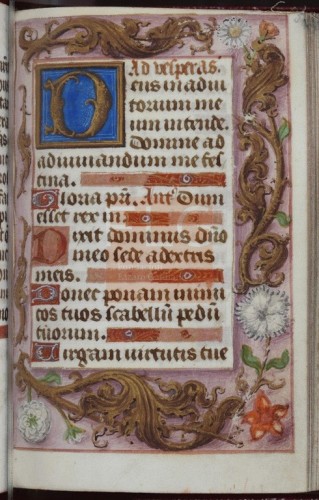 Ad vesperas.
Deus in adiu
torium me
um intende.
Domine ad
adiuuandum me fes
tina.
Gloria pr̄i. Antᵃ Dum
esset rex in
Dixit dominus dn̄o
meo sede a dextris
meis.
Donec ponam inimi
cos tuos scabellū pedū
tuorum.
Virgam virtutis tue